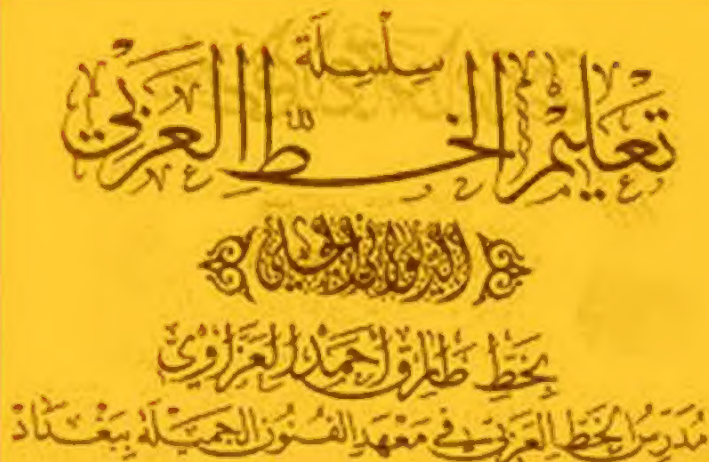 سلسلة
تعليم الخط العربي
الديواني الجلي
بخط طارق احمد العزاوي
مدرس الخط العربي في معهد الفنون الجميلة ببغداد